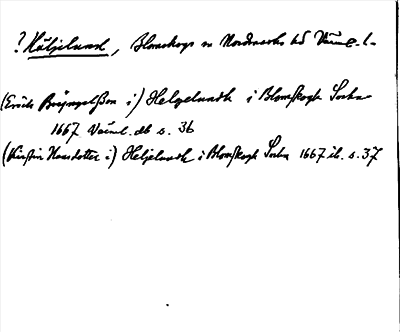 ? Häljelund, Blomskogs sn Nordmarks hd Värml. l.
(Erich Bryngelßon i) Helgelundh i Blomskogh Sochn
1667 Värml. db s. 36
(Kirstin Hansdotter i) Heljelundh i Blomskogh Sochn 1667 ib. s. 37